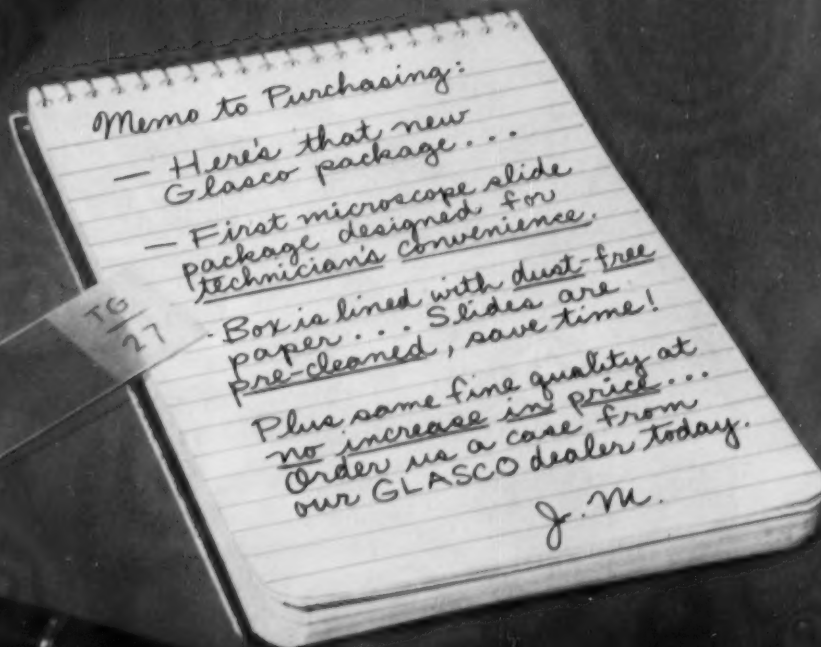 Memo to Purchasing:
— Here's that new
Glasco package...
— First microscope slide
package designed for
technician's convenience.
- Box is lined with dust-free
paper... Slides are
pre-cleaned, save time!
Plus same fine quality at
no increase in price...
Order us a case from
our GLASCO dealer today.
J. M.
TG
27